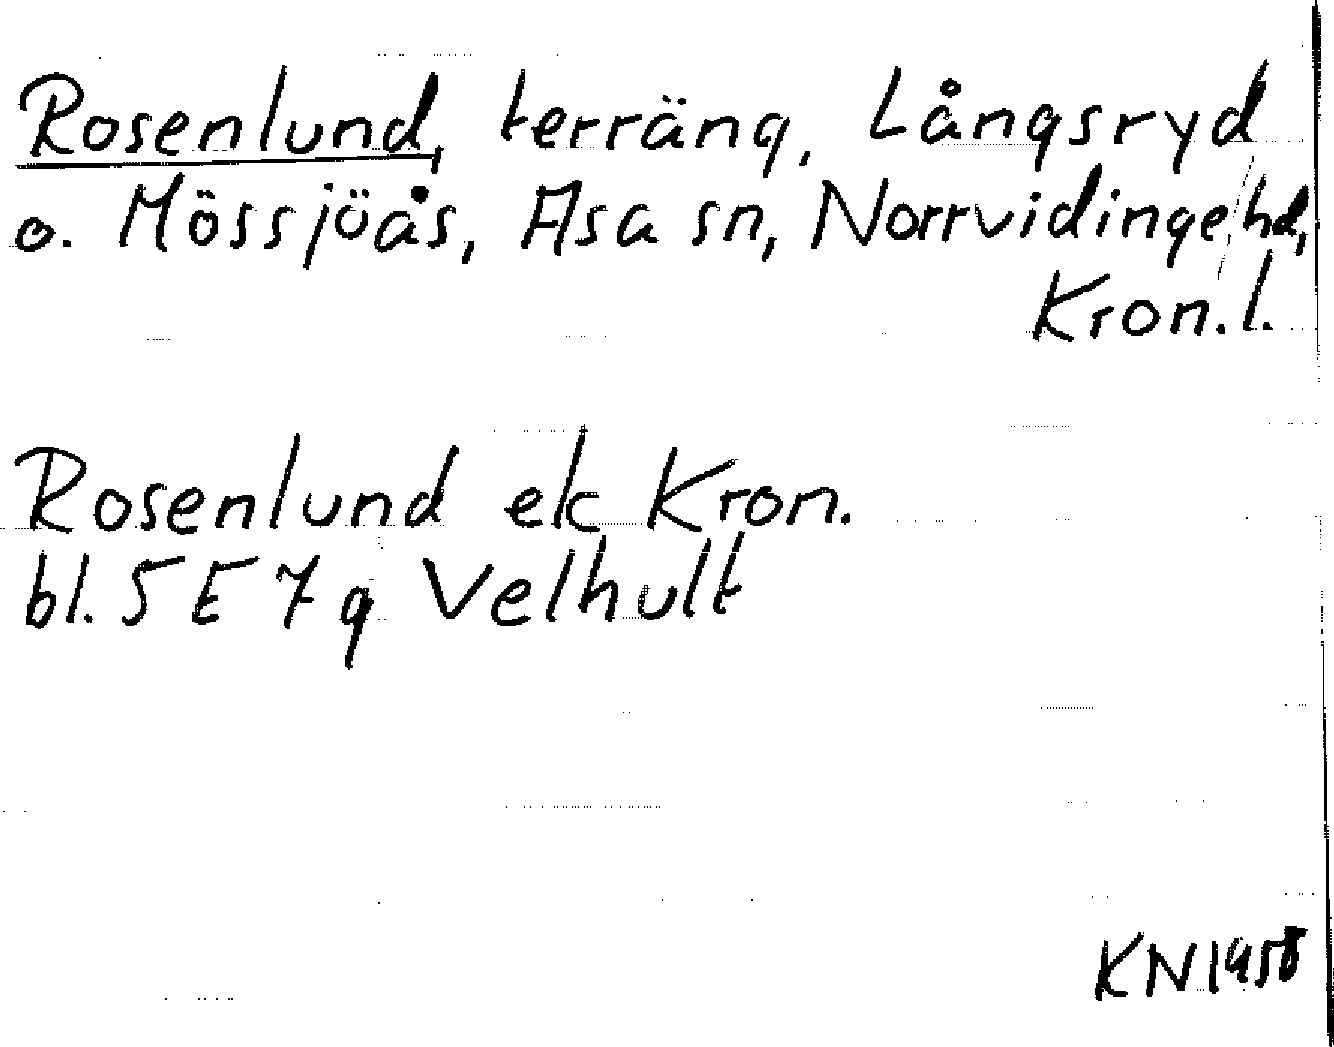 Rosenlund, terräng, Långsryd
o. Mössjöås, Asa sn, Norrvidinge hd,
Kron. l.
Rosenlund ek Kron.
bl. 5 E 7 g Velhult
KN 1958